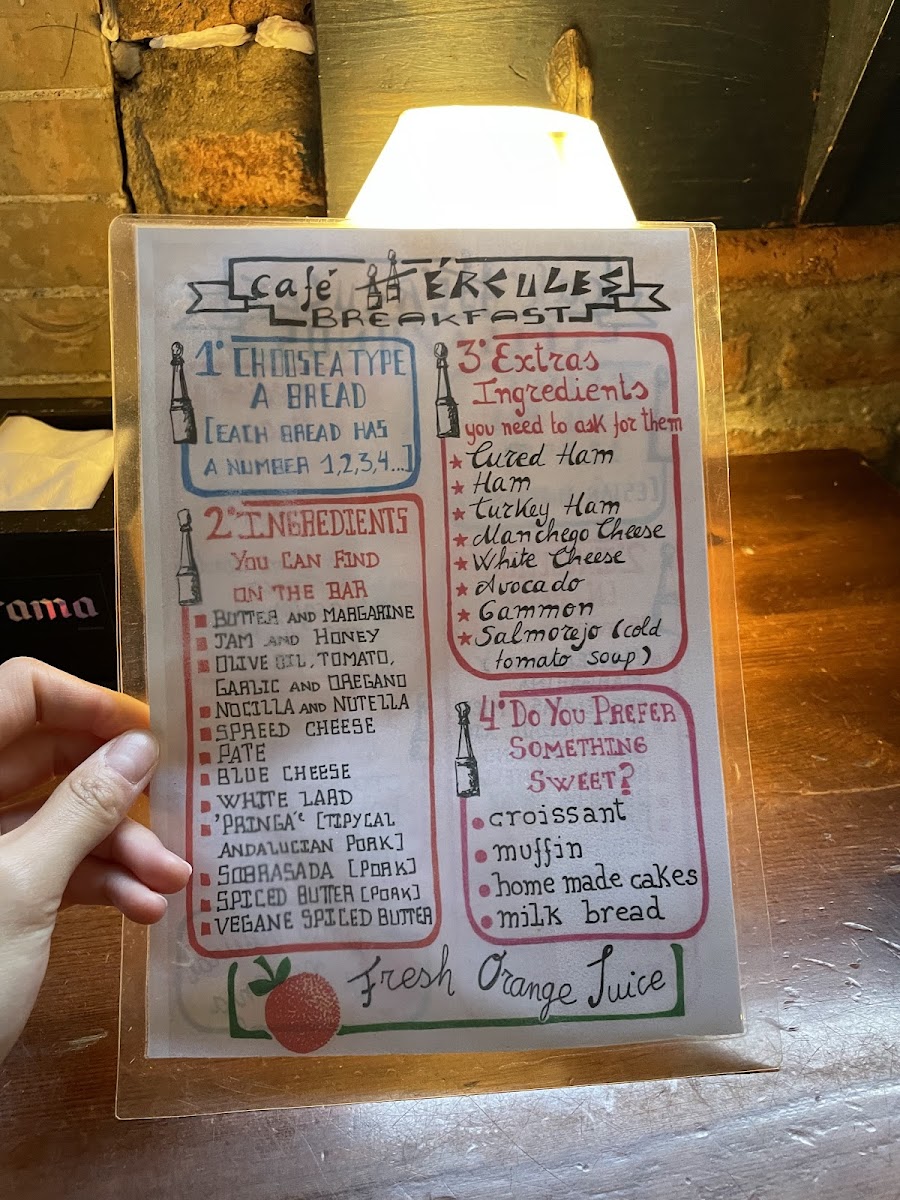 Café HÉRCULES
BREAKFAST
1º CHOOSE A TYPE
A BREAD
[EACH BREAD HAS
A NUMBER 1,2,3,4...]
2º INGREDIENTS
YOU CAN FIND
ON THE BAR
BUTTER AND MARGARINE
JAM AND HONEY
OLIVE OIL, TOMATO,
GARLIC AND OREGANO
NOCILLA AND NUTELLA
SPREED CHEESE
PATE
BLUE CHEESE
WHITE LARD
'PRINGA' [TIPYCAL
ANDALUCIAN PORK]
SOBRASADA [PORK]
SPICED BUTTER [PORK]
VEGANE SPICED BUTTER
3º Extras
Ingredients
you need to ask for them
Cured Ham
Ham
Turkey Ham
Manchego Cheese
White Cheese
Avocado
Gammon
Salmorejo (cold
tomato soup)
4º DO YOU PREFER
SOMETHING
SWEET?
croissant
muffin
home made cakes
milk bread
Fresh Orange Juice
rama